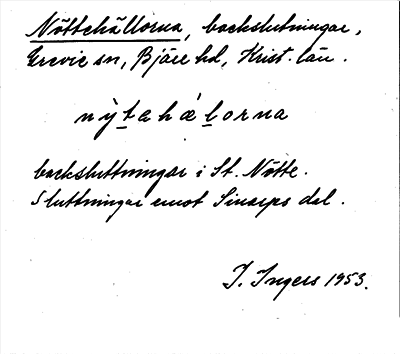 Nöttehällorna, backslutningar,
Grevie sn, Bjäre hd, Krist. län.
nỳtahæ̀lorna
backsluttningar i St. Nötte.
Sluttningar emot Sinarps dal.
I. Ingers 1953.